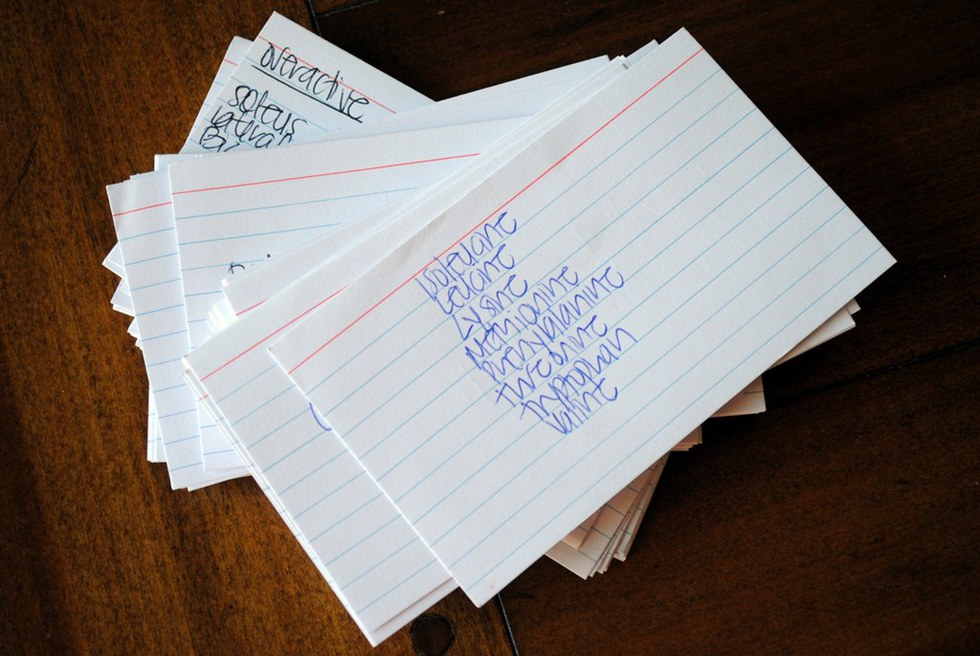 overactive
soleus
lateral
isoleucine
leucine
Lysine
methionine
phenylalanine
threonine
tryptophan
valine